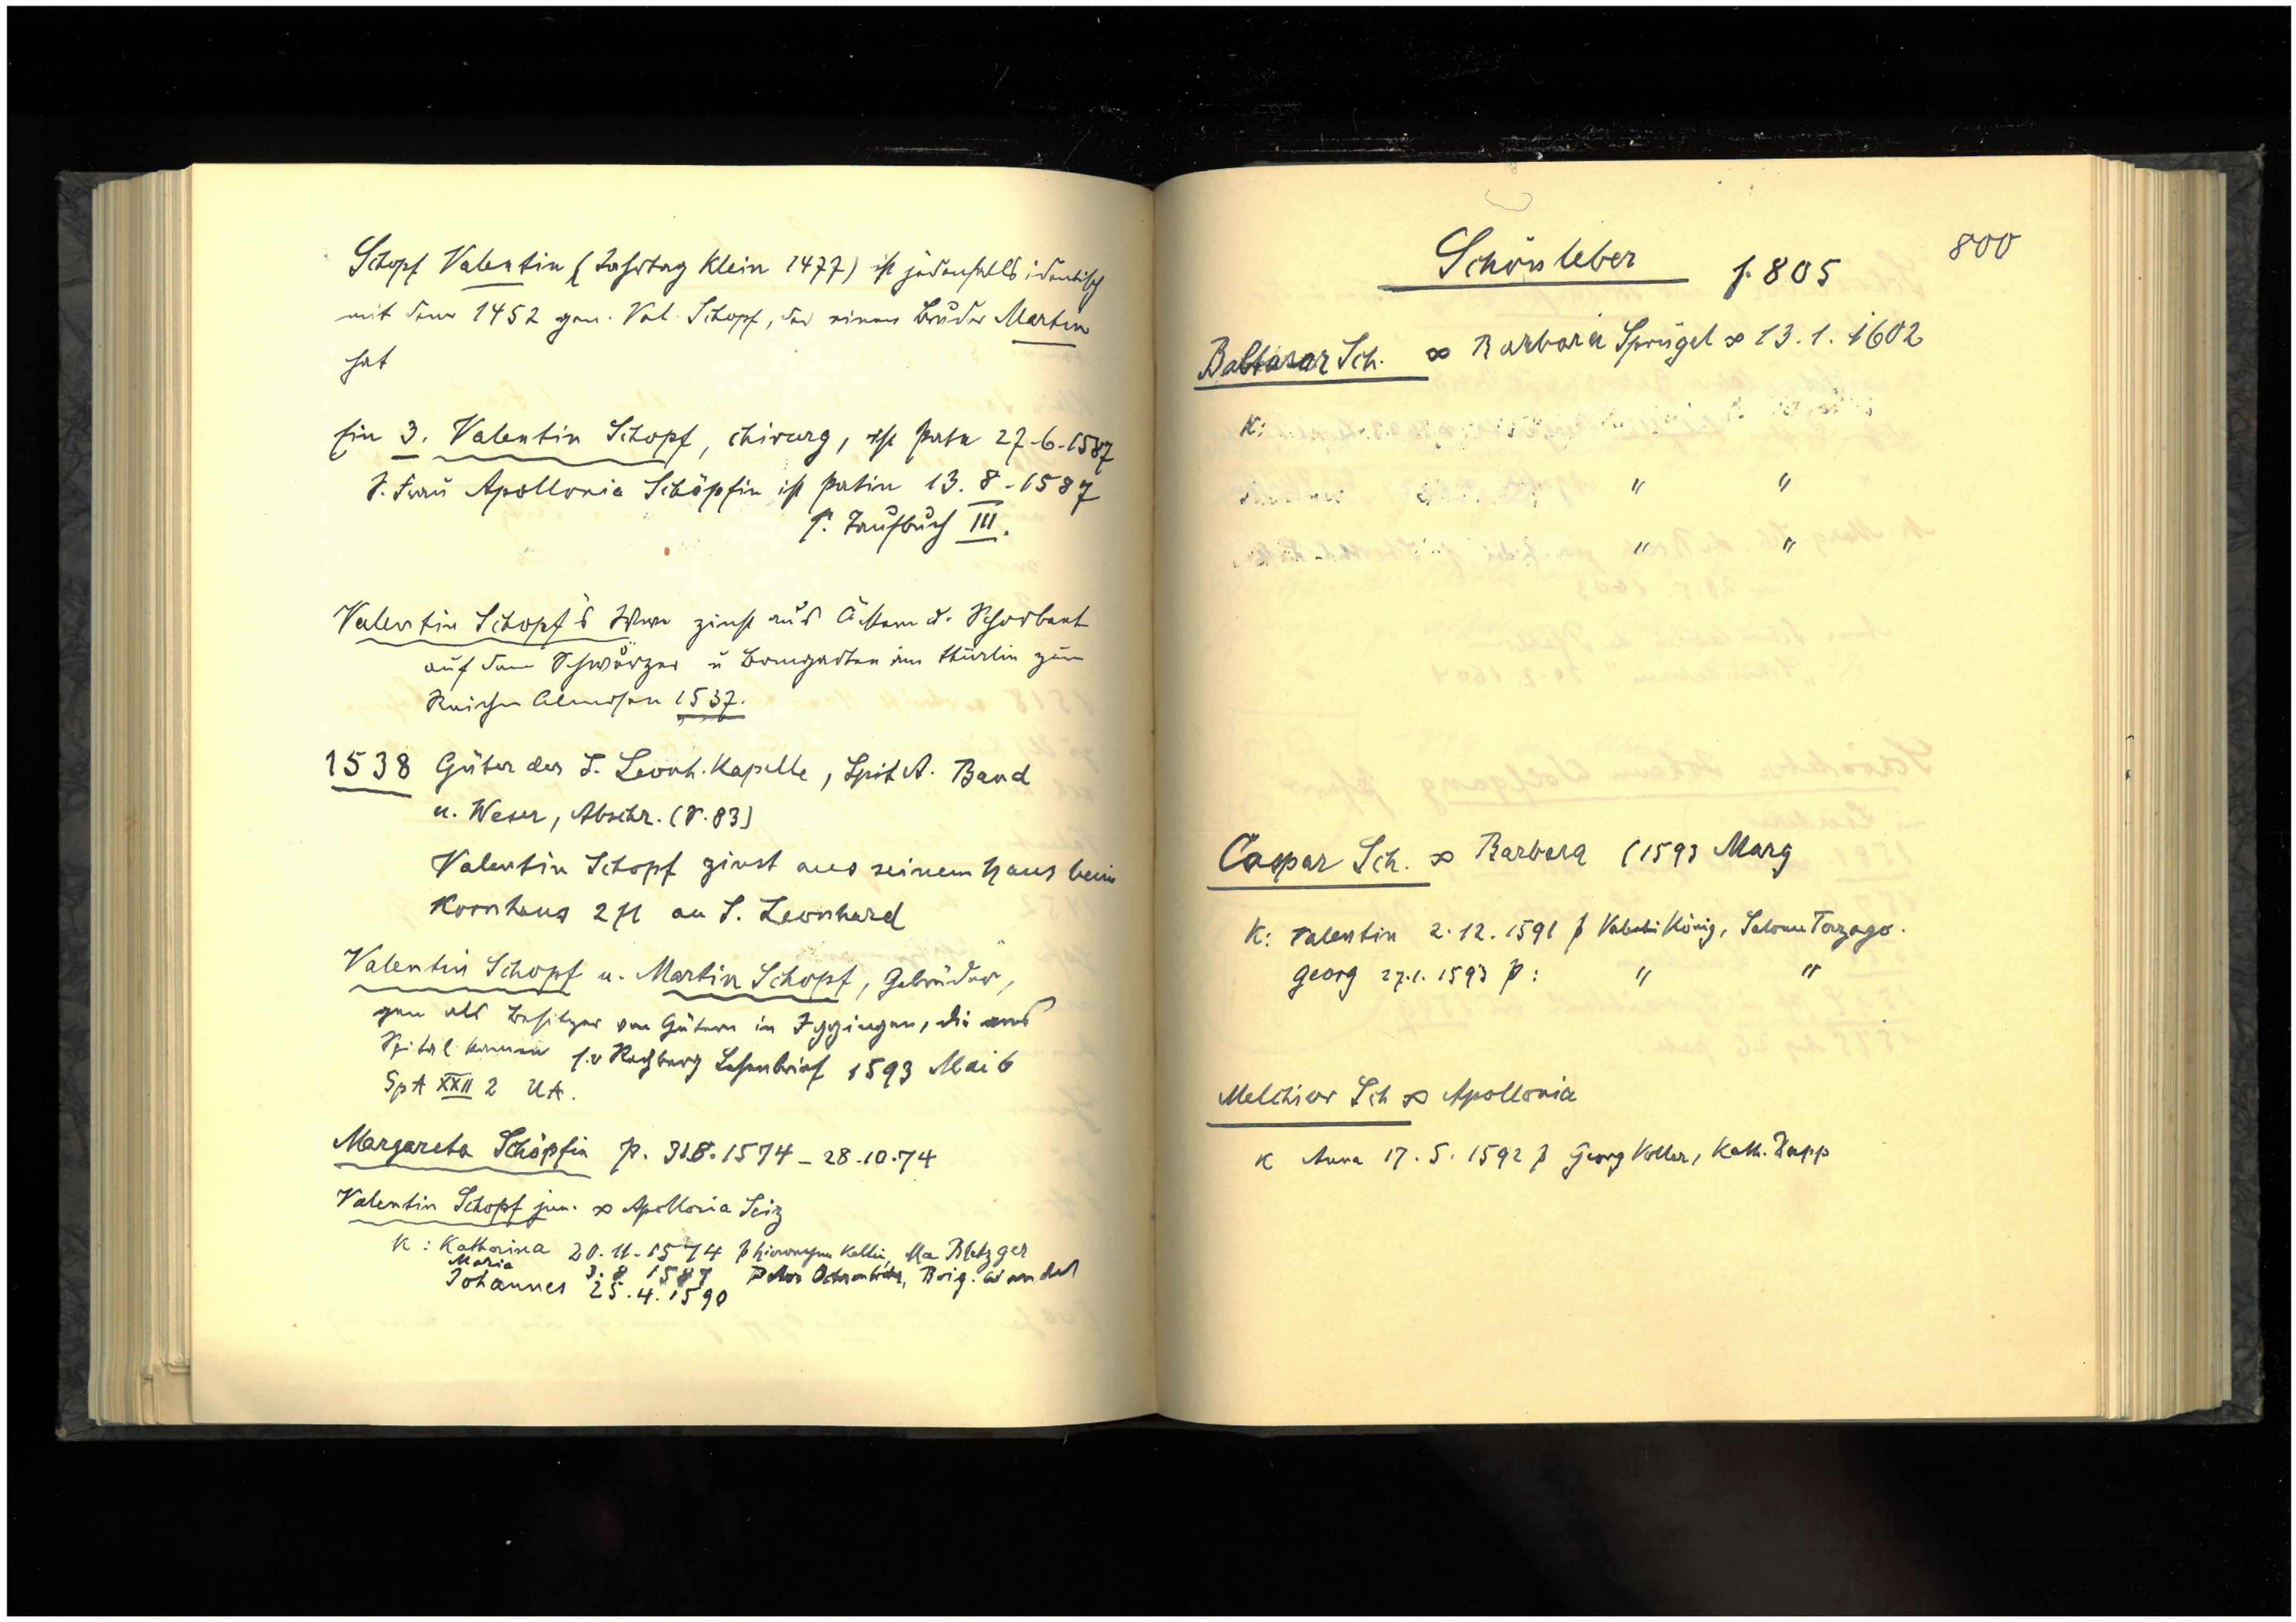 Schopf Valentin (Jahrtag Klein 1477) ist jedenfalls identisch
mit dem 1452 gen. Val. Schopf, der einen Bruder Martin
hat
Ein 3. Valentin Schopf, Chirurg, ist Pate 27.6.1587
S. Frau Apollonia Schöpfin ist Patin 13.8.1587
s. Taufbuch III.
Valentin Schopf's Wwe zinst aus
auf dem Schwärzer u Bomgarten im thürlin zum
Reichen Almosen 1537.
1538 Güter der S. Leonh. Kapelle, Spit A. Band
u. Weser, Abschr. (S. 83)
Valentin Schopf zinst aus seinem Haus beim
Kornhaus 2 fl an S. Leonhard
Valentin Schopf u. Martin Schopf, Gebrüder,
gen als Besitzer von Gütern in Iggingen, die ans
Spital kamen s. v Rechberg Lehenbrief 1593 Mai 6
SpA XXII 2 UA.
Margareta Schöpfin p. 1574 - 28.10.74
Valentin Schopf jun. ∞ Apollonia Seiz
K: Katharina 20.11.1574 p Ma Bletzger
Maria 3.8 1587 Peter Brig. Wendel
Johannes 25.4.1590
800
Schönleber s. 805
Baltasar Sch. ∞ Barbara Sprügel ∞ 13.1.1602
K:
" "
" "
Caspar Sch. ∞ Barbara (1593 Marg
K: Valentin 2.12.1591 p König, Salome Torzago.
Georg 27.1.1593 p: " "
Melchior Sch ∞ Apollonia
K Anna 17.5.1592 p Georg Koller, Kath. Rapp